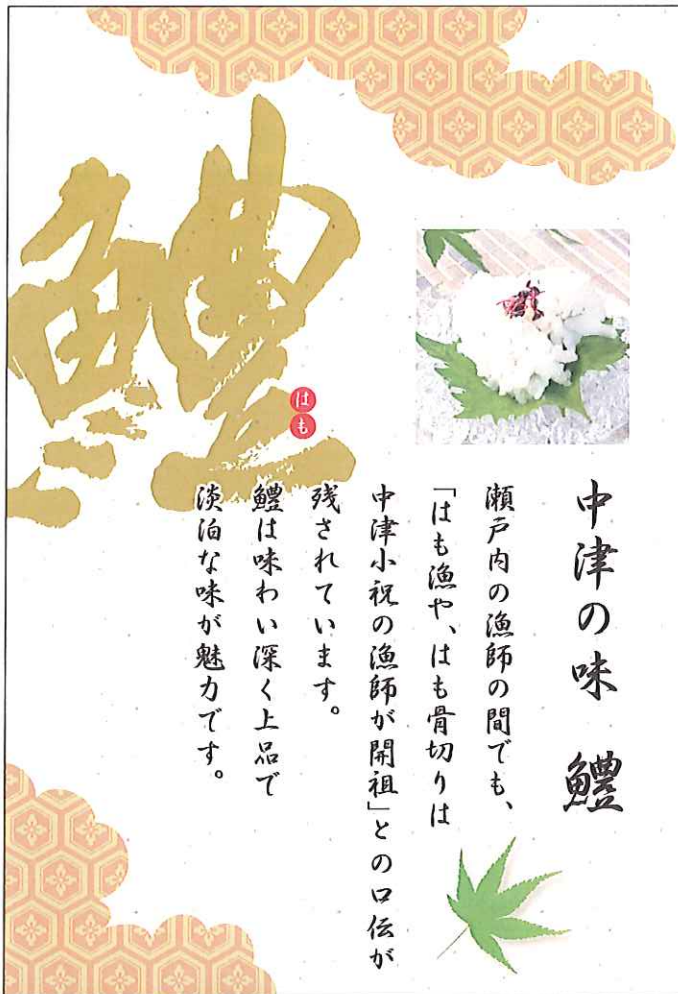 中津の味 鱧
瀬戸内の漁師の間でも、
「はも漁や、はも骨切りは
中津小祝の漁師が開祖」との口伝が
残されています。
鱧は味わい深く上品で
淡泊な味が魅力です。
鱧
はも